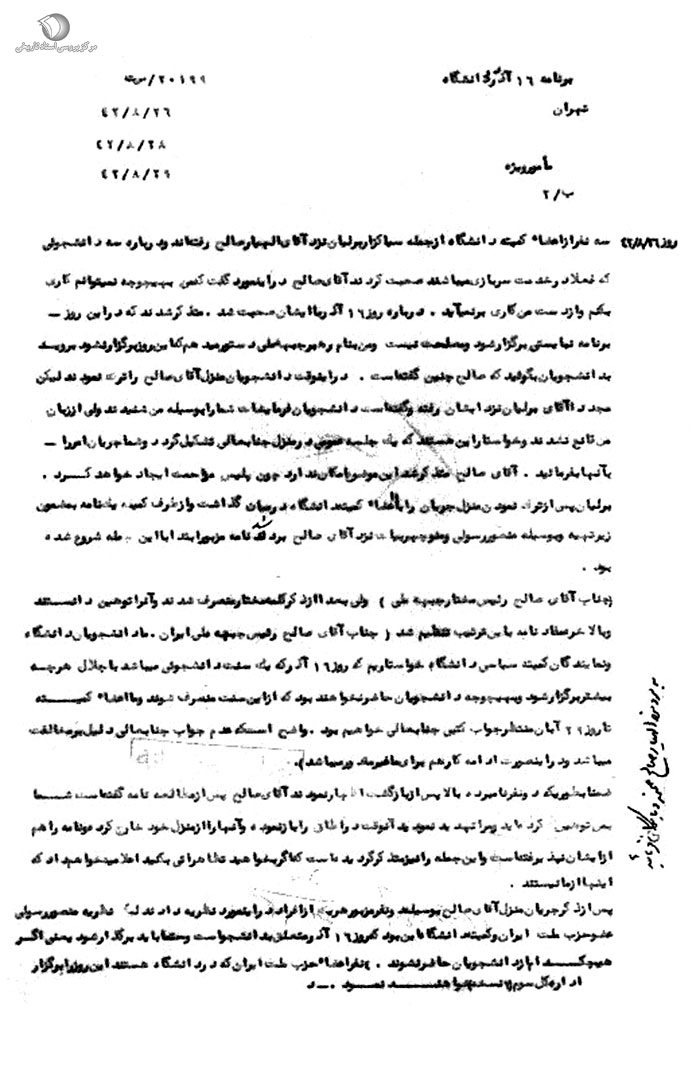 مرکز بررسی اسناد تاریخی
برنامه ۱۶ آذر دانشگاه
۲۰۱۹۹/س ت
تهران
۴۲/۸/۲۶
۴۲/۸/۲۸
مأمور ویژه
۴۲/۸/۲۹
ب/۲
روز ۴۲/۸/۲۶ سه نفر از اعضاء کمیته دانشگاه از جمله برلیان نزد آقای الهیار صالح رفته‌اند و درباره سه دانشجوئی
که فعلا در خدمت سربازی میباشند صحبت کردند آقای صالح در اینمورد گفت که من بهیچوجه نمیتوانم کاری
بکنم و از دست من کاری برنمیآید . درباره روز ۱۶ آذر با ایشان صحبت شد . متذکر شدند که در این روز -
برنامه نبایستی برگزار شود و مصلحت نیست ومن بنام رهبر جبهه ملی دستور میدهم که این روز برگزار نشود بروید
بدانشجویان بگوئید که صالح چنین گفته است . در اینوقت دانشجویان منزل آقای صالح را ترک نمودند لیکن
مجددا آقای برلیان نزد ایشان رفته و گفته است دانشجویان فرمایشات شما را بوسیله من شنیدند ولی از زبان
من قانع نشدند و خواستار این هستند که یک جلسه عمومی در منزل جنابعالی تشکیل گردد و شما جریان امر را -
بآنها بفرمائید . آقای صالح متذکر شدند این موضوع امکان ندارد چون پلیس مزاحمت ایجاد خواهد کرد .
برلیان پس از ترک نمودن منزل جریان را با اعضاء کمیته دانشگاه در میان گذاشت و از طرف کمیته یک نامه بمضمون
زیر تهیه و بوسیله منصور رسولی و منوچهر بیات نزد آقای صالح بردند که نامه مزبور ابتدا با این جمله شروع شده
بود .
(جناب آقای صالح رئیس مختار جبهه ملی ) ولی بعدا از ذکر کلمه مختار منصرف شدند و آنرا توهین دانستند
و بالاخره مفاد نامه باین ترتیب تنظیم شد ( جناب آقای صالح رئیس جبهه ملی ایران . ما دانشجویان دانشگاه
و نمایندگان کمیته سیاسی دانشگاه خواستاریم که روز ۱۶ آذر که یک سنت دانشجوئی میباشد با جلال هرچه
بیشتر برگزار شود و بهیچوجه دانشجویان حاضر نخواهند بود که از این سنت منصرف شوند و ما اعضاء کمیته
تا روز ۲۹ آبان منتظر جواب کتبی جنابعالی خواهیم بود . واضح است که عدم جواب جنابعالی دلیل بر مخالفت
میباشد و در اینصورت ادامه کار هم برای ما غیرمقدور میباشد ) .
ضمنا بطوریکه دو نفر نامبرده بالا پس از بازگشت اظهار نمودند آقای صالح پس از مطالعه نامه گفته است شما
بمن توهین کرده‌اید و مرا تهدید نمودید آنوقت در اطاق را باز نموده و آنها را از منزل خود خارج کرده و نامه را هم
از ایشان نپذیرفته است و این جمله را نیز متذکر گردیده است که اگر بخواهید تظاهراتی بکنید اعلامیه خواهم داد که
اینها از ما نیستند .
پس از ذکر جریان منزل آقای صالح بوسیله دو نفر مزبور هریک از افراد در اینمورد نظریه دادند لیکن نظریه منصور رسولی
عضو حزب ملت ایران و کمیته دانشگاه این بود که روز ۱۶ آذر متعلق بدانشجو است و حتما باید برگذار شود یعنی اگر
هیچکدام از دانشجویان حاضر نشوند . نفر اعضاء حزب ملت ایران که در دانشگاه هستند این روز را برگزار
خواهند نمود . - د
اداره کل سوم